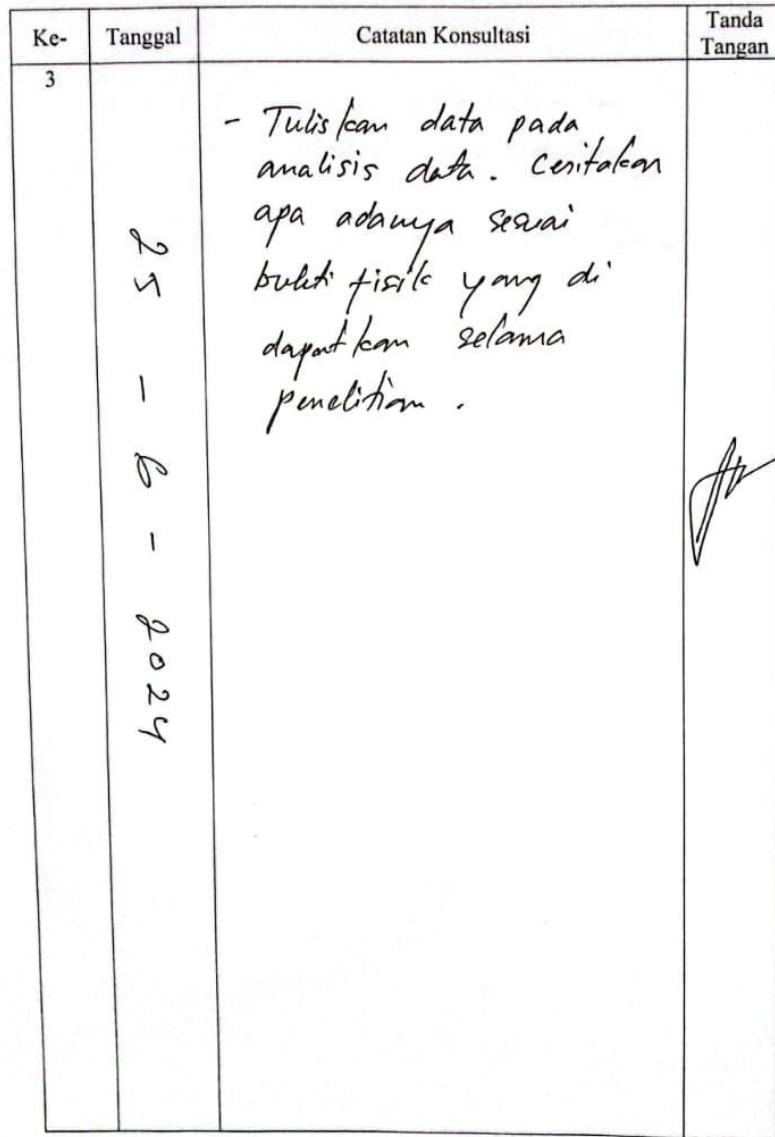 Ke- Tanggal Catatan Konsultasi Tanda Tangan
3
25 - 6 - 2024
- Tuliskan data pada
analisis data. Ceritakan
apa adanya sesuai
bukti fisik yang di
dapatkan selama
penelitian.